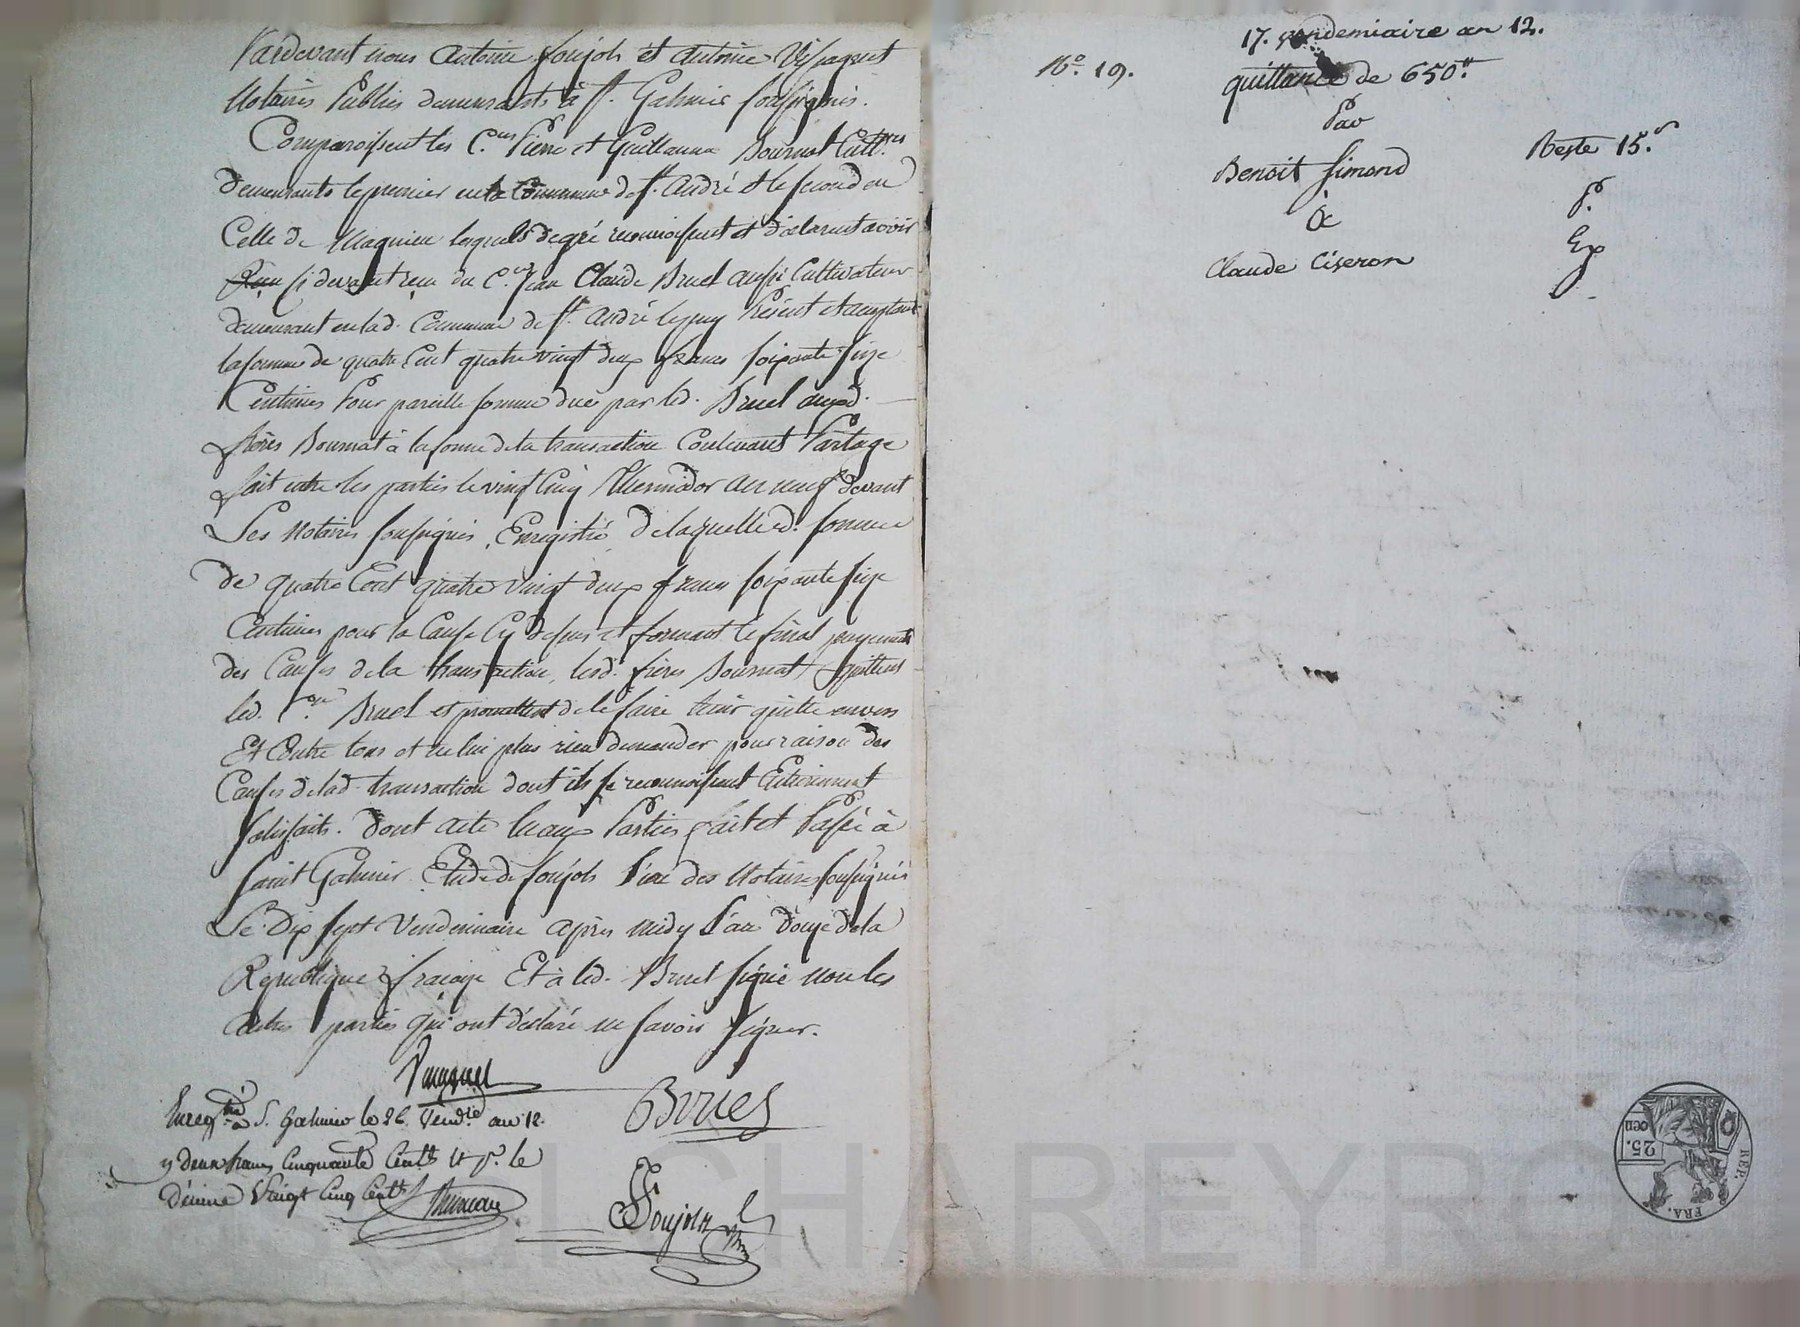 Pardevant nous Antoine Soujols et Antoine Vesagnet
Notaires Publics demeurants à St. Galmier soussignés.
Comparoissent les C.ens Pierre et Guillaume Bournat Cult.res
demeurants le premier en la Commune de St. André et le second en
Celle de lesquels de gré reconnoissent et déclarent avoir
si devant reçu du C.en Jean Claude Bruel aussi Cultivateur
demeurant en lad. Commune de St. André le puy Présent et acceptant
la somme de quatre Cent quatre vingt deux francs soixante seize
Centimes Pour pareille somme due par led. Bruel auxd.
frères Bournat à la forme de la transaction Contenant Partage
fait entre les parties le vingt Cinq Thermidor an neuf devant
Les Notaires soussignés, Enregistré, De laquelle d. somme
de quatre Cent quatre vingt deux francs soixante seize
Centimes pour la Cause Cy dessus et formant le final payement
des Causes de la transaction, lesd. frères Bournat quittent
led. C.en Bruel et promettent de le faire tenir quitte envers
Et Contre tous et ne lui plus rien demander pour raison des
Causes de lad. transaction dont ils se reconnoissent Entièrement
satisfaits. Dont acte aux Parties fait et Passé à
Saint Galmier Etude de Soujols l'un des Notaires soussignés
Le Dix sept Vendemiaire après midy l'an Douze de la
République française Et à led. Bruel signé non les
autres parties qui ont déclaré ne savoir signer.
Bruel
Enreg.tré à S. Galmier le 26 Vend.re an 12.
deux francs Cinquante Cent.s le
Décime Vingt Cinq Cent.s
Soujols
17. vendemiaire an 12.
No. 19.
quittance de 650.tt
Par
Benoit Simond
Reste 15.s
à
P.
Claude Ciseron
Exp
25.
cen
RÉP.
FRA.
CHAREYRO